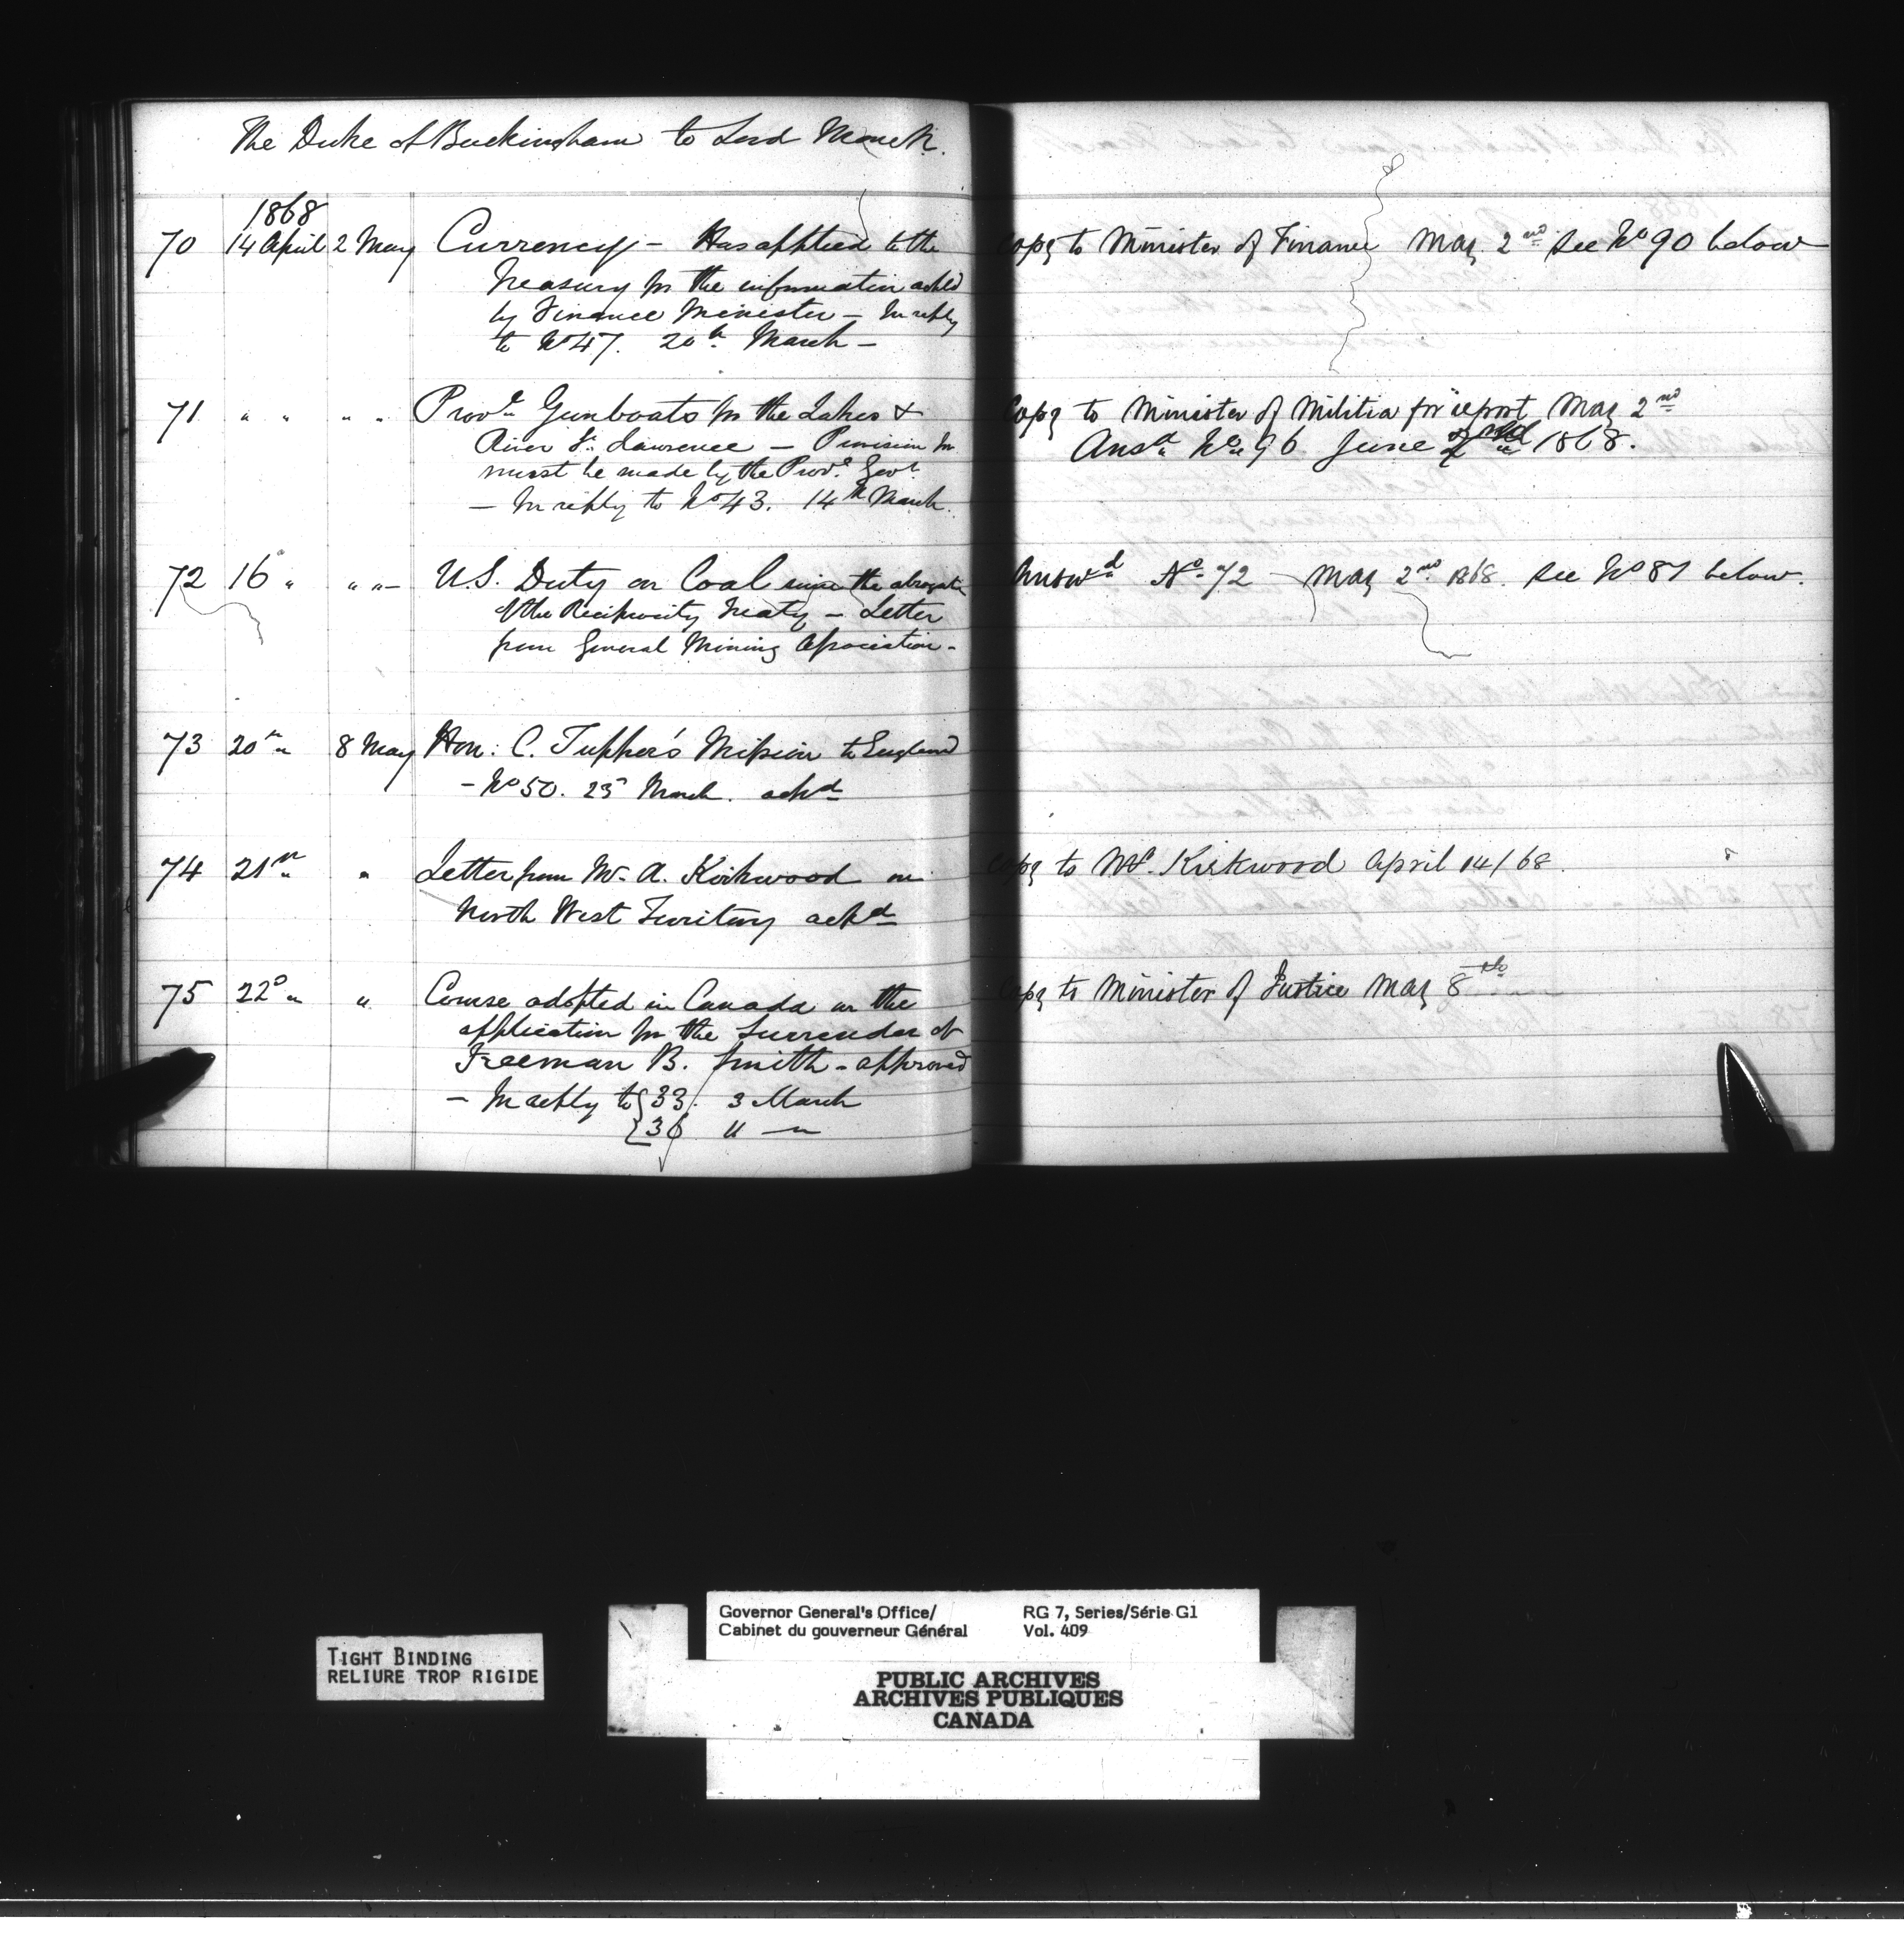 The Duke of Buckingham to Lord Monck.
1868
70 14 April 2 May Currency - Has applied to the Copy to Minister of Finance May 2nd See No 90 below
Treasury for the information asked
by Finance Minister - In reply
to No 47. 20th March -
71 " " " " Provl Gunboats for the Lakes & Copy to Minister of Militia for report May 2nd
River St. Lawrence - Provision for Ansd No 96 June 2nd 1868.
must be made by the Provl Govt
- In reply to No 43. 14th March.
72 16 " " " - U.S. Duty on Coal since the abrogatn Answd No 72 May 2nd 1868. See No 87 below.
of the Reciprocity Treaty - Letter
from General Mining Association -
73 20th " 8 May Hon: C. Tupper's Mission to England
- No 50. 25 March. ackd
74 21st " " Letter from Mr. A. Kirkwood on Copy to Mr. Kirkwood April 14/68.
North West Territory ackd
75 22d " " Course adopted in Canada on the Copy to Minister of Justice May 8th
application for the Surrender of
Freeman B. Smith - approved
- In reply to 33. 3 March
36 11 "
Governor General's Office/ RG 7, Series/Série G1
Cabinet du gouverneur Général Vol. 409
TIGHT BINDING
RELIURE TROP RIGIDE
PUBLIC ARCHIVES
ARCHIVES PUBLIQUES
CANADA